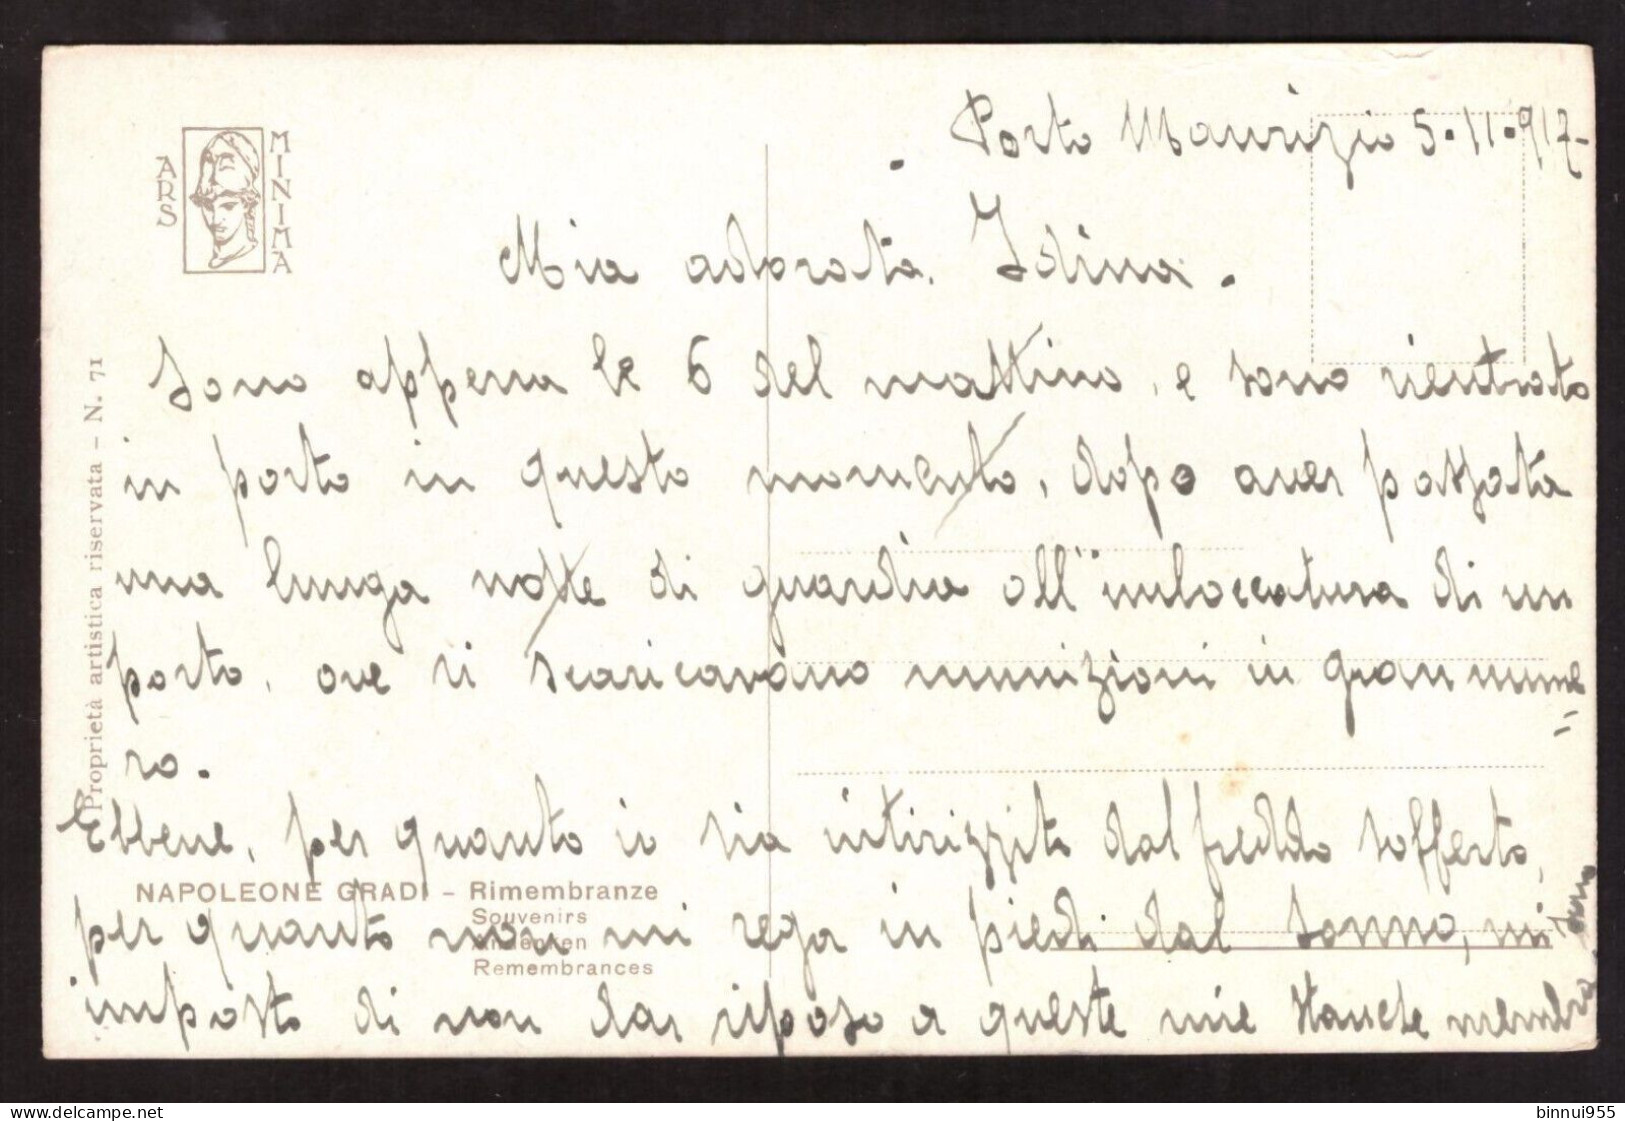 Porto Maurizio 5-11-917-
ARS
MINIMA
Mia adorata Idina.
Sono appena le 6 del mattino, e sono rientrato
in porto in questo momento, dopo aver passata
una lunga notte di guardia all'imboccatura di un
porto, ove si scaricavano munizioni in gran nume=
ro.
Ebbene, per quanto io sia intirizzito dal freddo sofferto,
per quanto non mi rega in piedi dal sonno, mi sono
imposto di non dar riposo a queste mie stanche membra
Proprietà artistica riservata - N. 71
NAPOLEONE GRADI - Rimembranze
Souvenirs
Andenken
Remembrances
binnui955
www.delcampe.net